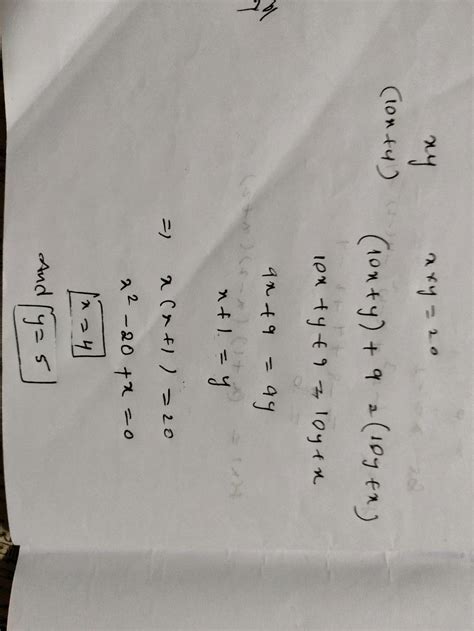 xy
(10x+y)
x×y = 20
(10x+y) + 9 = (10y+x)
10x+y+9 = 10y+x
9x+9 = 9y
x+1 = y
=> x(x+1) = 20
x² - 20 + x = 0
x = 4
And y = 5